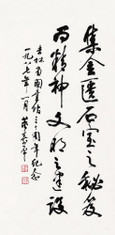 集金匮石室之秘笈
为精神文明之建设
吉林省图书馆三十周年纪念
一九八七年一月 董寿平